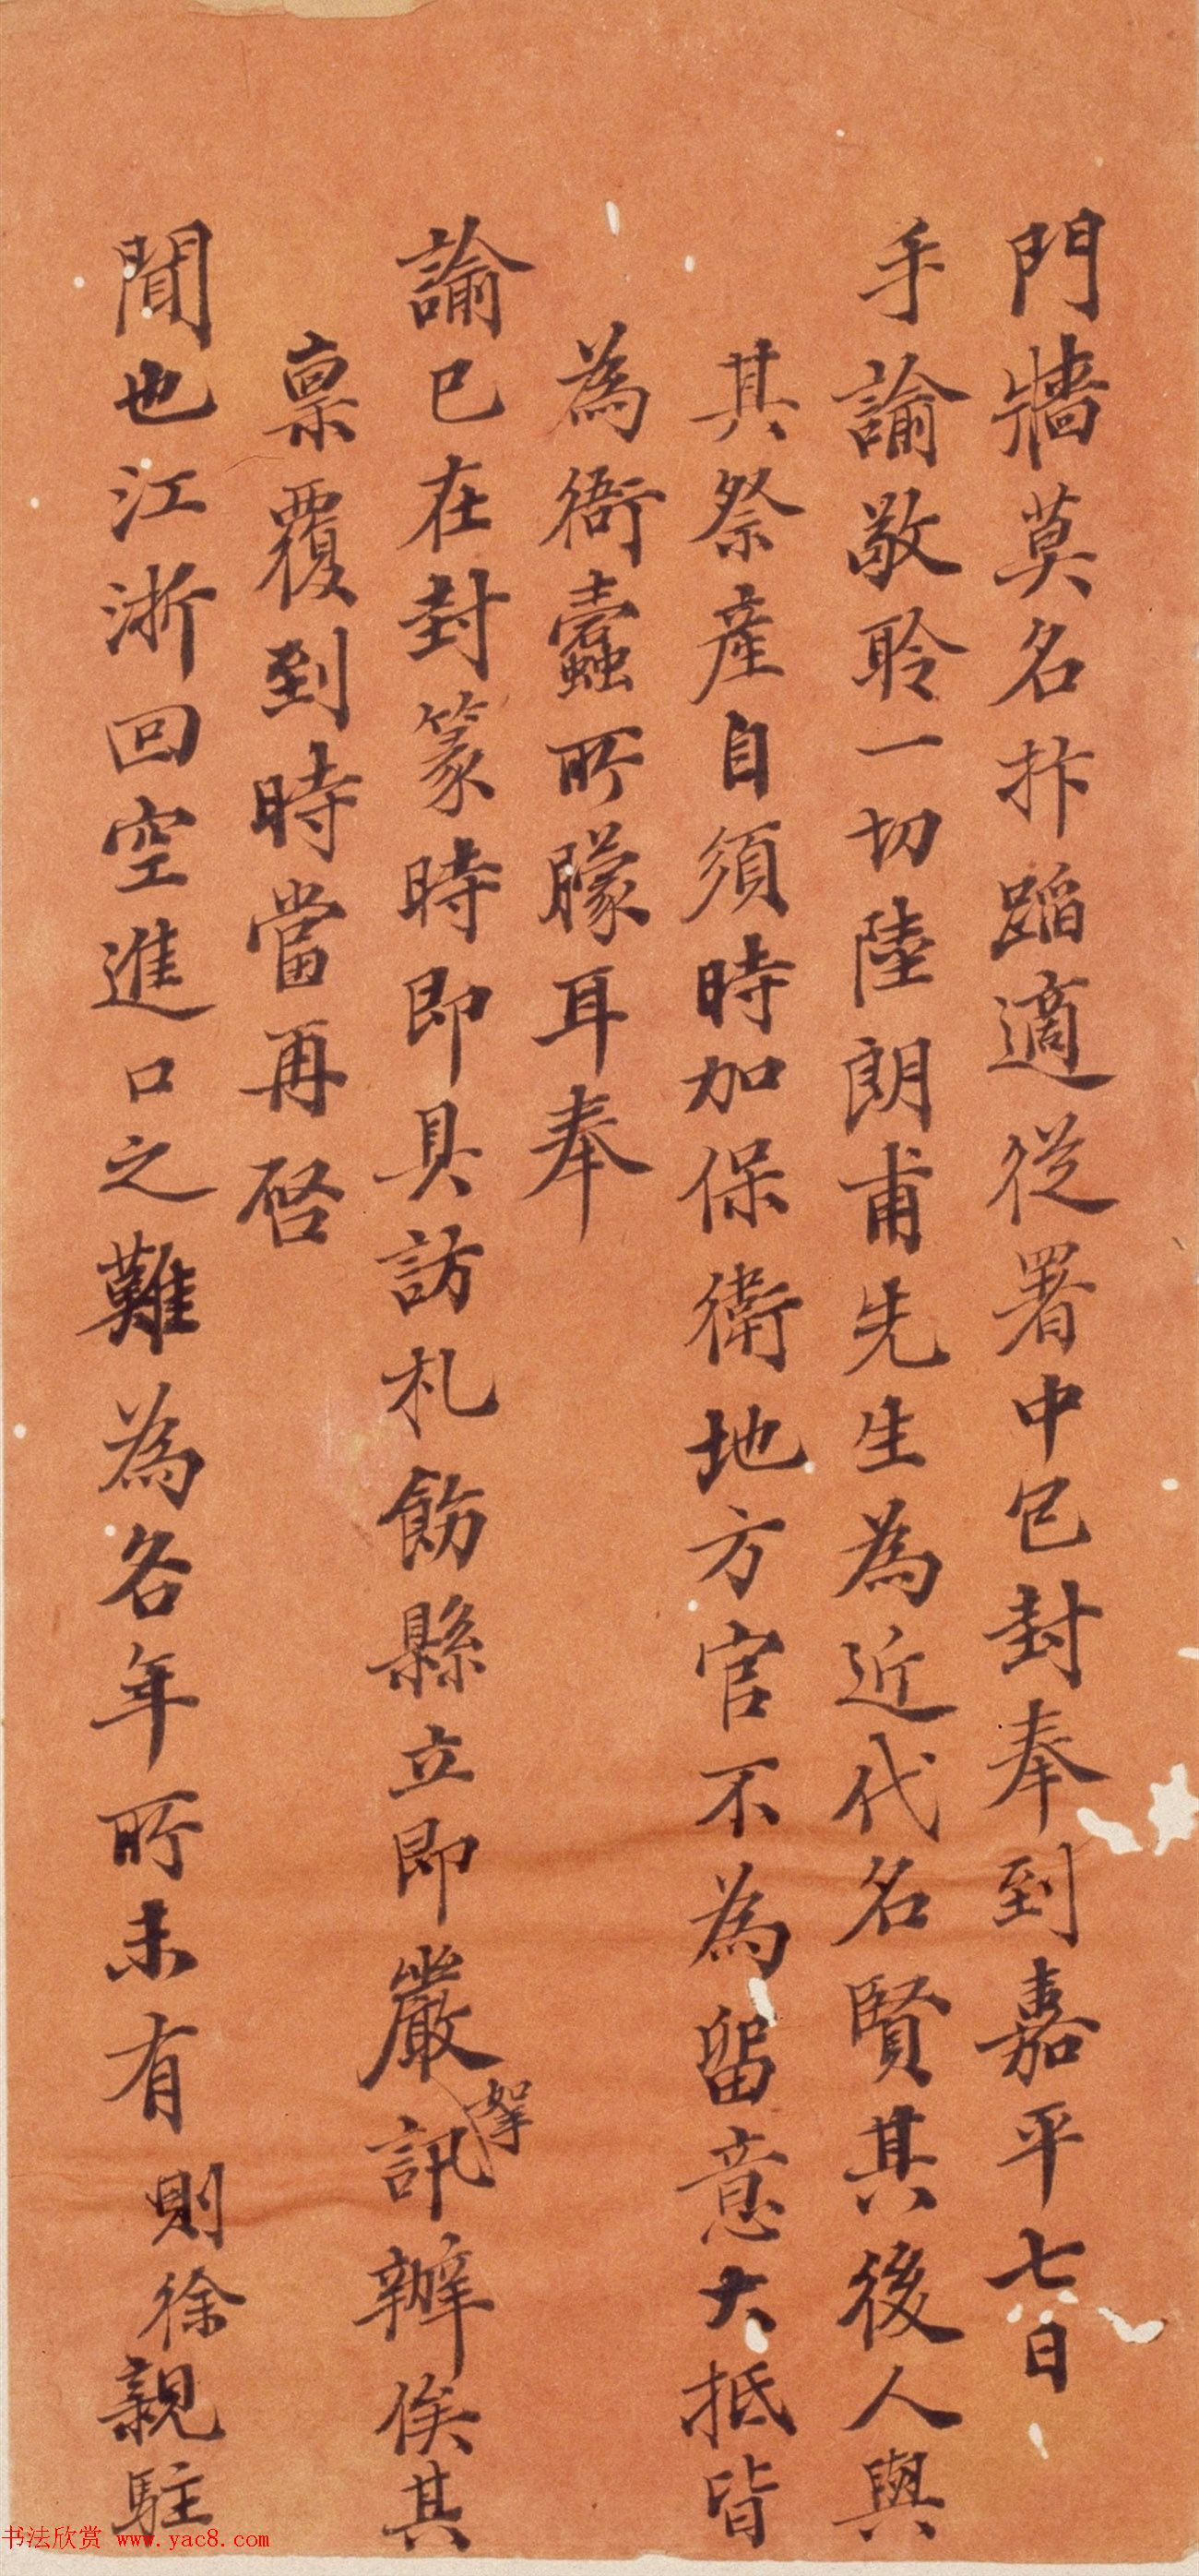 門牆莫名抃蹈適從署中包封奉到嘉平七日
手諭敬聆一切陸朗甫先生為近代名賢其後人與
其祭產自須時加保衛地方官不為留意大抵皆
為衙蠹所矇耳奉
諭已在封篆時即具訪札飭縣立即嚴拏訊辦俟其
稟覆到時當再啓
聞也江浙回空進口之難為各年所未有則徐親駐
书法欣赏 www.yac8.com